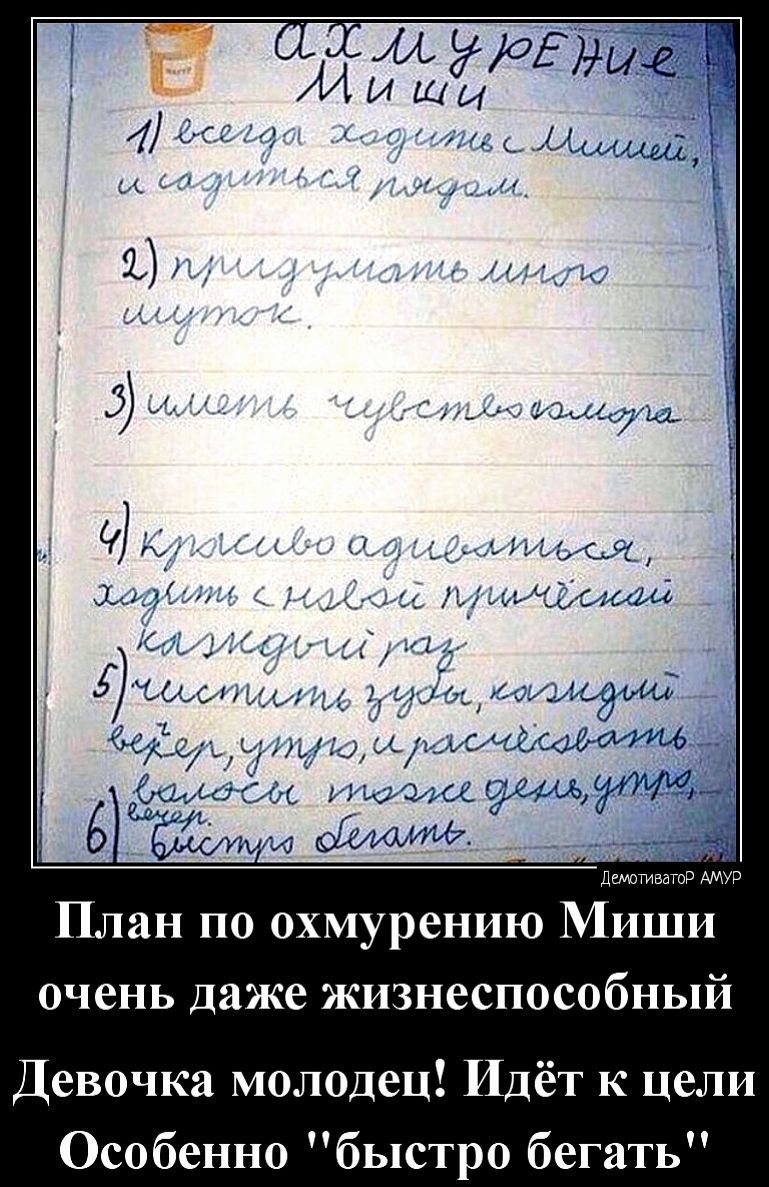 ахмурЕние
Миши
1) всегда ходить с Мишей,
и садиться рядом.
2) придумать много
шуток.
3) иметь чувство юмора
4) красиво адиваться,
ходить с новой причёской
каждый раз
5) чистить зубы, каждый
вечер, утро, и расчёсовать
волосы тоже день, утро,
вечер.
6) быстро бегать.
ДемотиватоР АМУР
План по охмурению Миши
очень даже жизнеспособный
Девочка молодец! Идёт к цели
Особенно "быстро бегать"